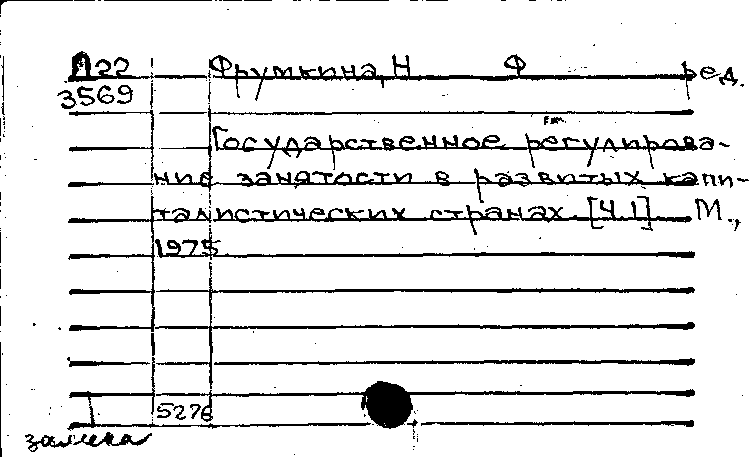 Л22 Фрумкина, Н Ф ред.
3569
Государственное регулирова-
ние занятости в развитых капи-
талистических странах. [Ч.1] М.,
1975
5276
замена